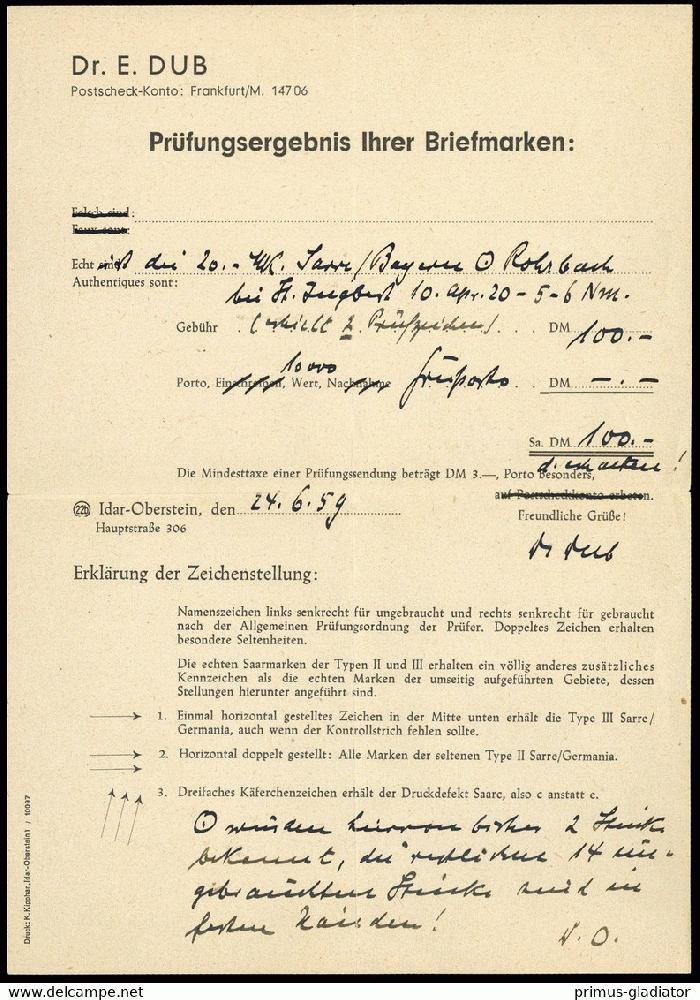 Dr. E. DUB
Postscheck-Konto: Frankfurt/M. 14706
Prüfungsergebnis Ihrer Briefmarken:
Falsch sind:
Faux sont:
Echt sind die 20.- Mk. Sarre/Bayern O Rohrbach
Authentiques sont:
bei St. Ingbert 10. Apr. 20 - 5-6 Nm.
Gebühr (erhielt 2 Prüfzeichen) DM 100.-
10000
Porto, Einschreiben, Wert, Nachnahme DM -.-
Sa. DM 100.-
Die Mindesttaxe einer Prüfungssendung beträgt DM 3.—, Porto besonders,
auf Postscheckkonto erbeten.
22b Idar-Oberstein, den 24.6.59
Freundliche Grüße!
Hauptstraße 306
Dr Dub
Erklärung der Zeichenstellung:
Namenszeichen links senkrecht für ungebraucht und rechts senkrecht für gebraucht
nach der Allgemeinen Prüfungsordnung der Prüfer. Doppeltes Zeichen erhalten
besondere Seltenheiten.
Die echten Saarmarken der Typen II und III erhalten ein völlig anderes zusätzliches
Kennzeichen als die echten Marken der umseitig aufgeführten Gebiete, dessen
Stellungen hierunter angeführt sind.
1. Einmal horizontal gestelltes Zeichen in der Mitte unten erhält die Type III Sarre/
Germania, auch wenn der Kontrollstrich fehlen sollte.
2. Horizontal doppelt gestellt: Alle Marken der seltenen Type II Sarre/Germania.
3. Dreifaches Käferchenzeichen erhält der Druckdefekt Saarc, also c anstatt e.
O wurden hiervon bisher 2 Stück
bekannt, die restlichen 14 un-
gebrauchten Stücke sind in
festen Händen!
D. O.
Druck: R. Kipphar, Idar-Oberstein 1 / 10037
www.delcampe.net
primus-gladiator